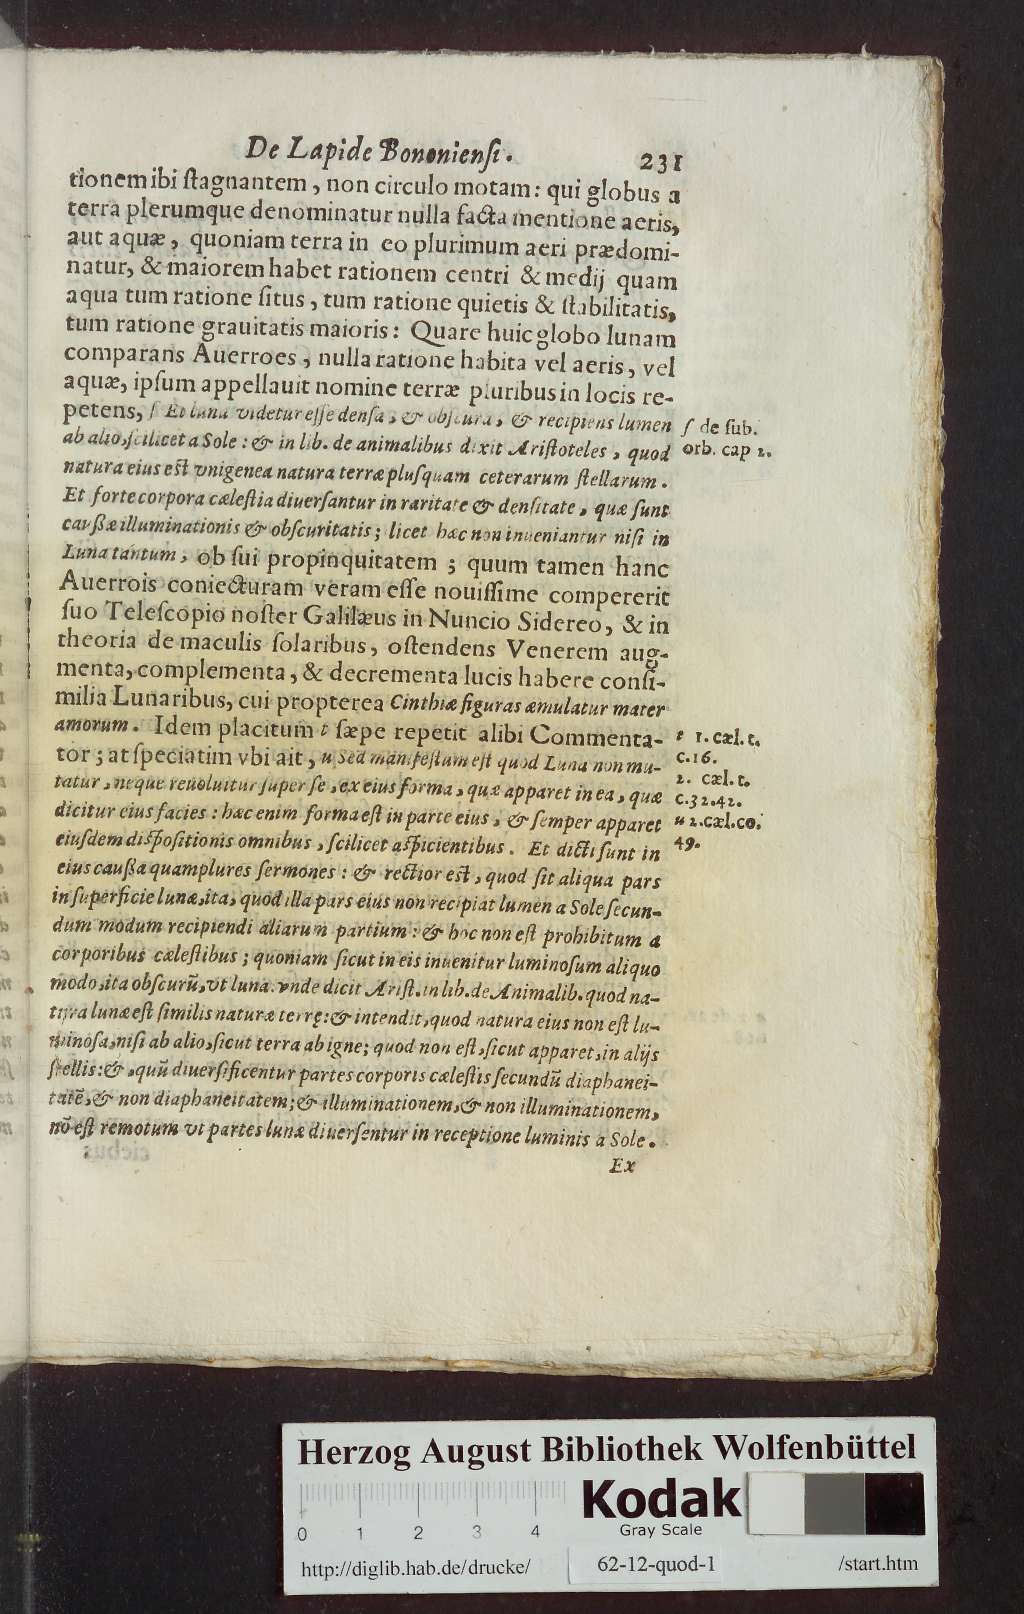 De Lapide Bononiensi. 231
tionem ibi stagnantem, non circulo motam: qui globus a
terra plerumque denominatur nulla facta mentione aeris,
aut aquæ, quoniam terra in eo plurimum aeri prædomi-
natur, & maiorem habet rationem centri & medij quam
aqua tum ratione situs, tum ratione quietis & stabilitatis,
tum ratione grauitatis maioris: Quare huic globo lunam
comparans Auerroes, nulla ratione habita vel aeris, vel
aquæ, ipsum appellauit nomine terræ pluribus in locis re-
petens, ſ Et luna videtur esse densa, & obscura, & recipiens lumen
ſ de sub.
ab alio, scilicet a Sole: & in lib. de animalibus dixit Aristoteles, quod
orb. cap 2.
natura eius est vnigenea natura terræ plusquam ceterarum stellarum.
Et forte corpora cælestia diuersantur in raritate & densitate, quæ sunt
caussæ illuminationis & obscuritatis; licet hæc non inueniantur nisi in
Luna tantum, ob sui propinquitatem; quum tamen hanc
Auerrois coniecturam veram esse nouissime compererit
suo Telescopio noster Galilæus in Nuncio Sidereo, & in
theoria de maculis solaribus, ostendens Venerem aug-
menta, complementa, & decrementa lucis habere consi-
milia Lunaribus, cui propterea Cinthiæ figuras æmulatur mater
amorum. Idem placitum t sæpe repetit alibi Commenta-
t 1. cæl. t.
tor; at speciatim vbi ait, u Sed manifestum est quod Luna non mu-
c. 16.
tatur, neque reuoluitur super se, ex eius forma, quæ apparet in ea, quæ
2. cæl. t.
c. 32. 42.
dicitur eius facies: hæc enim forma est in parte eius, & semper apparet
u 2. cæl. co.
eiusdem dispositionis omnibus, scilicet aspicientibus. Et dicti sunt in
49.
eius caussa quamplures sermones: & rectior est, quod sit aliqua pars
in superficie lunæ, ita, quod illa pars eius non recipiat lumen a Sole secun-
dum modum recipiendi aliarum partium: & hoc non est prohibitum a
corporibus cælestibus; quoniam sicut in eis inuenitur luminosum aliquo
modo, ita obscurũ, vt luna. vnde dicit Arist. in lib. de Animalib. quod na-
tura lunæ est similis naturæ terrę: & intendit, quod natura eius non est lu-
minosa, nisi ab alio, sicut terra ab igne; quod non est, sicut apparet, in alijs
stellis: &, quũ diuersificentur partes corporis cælestis secundũ diaphanei-
tatẽ, & non diaphaneitatem; & illuminationem, & non illuminationem,
nõ est remotum vt partes lunæ diuersentur in receptione luminis a Sole.
Ex
Herzog August Bibliothek Wolfenbüttel
0 1 2 3 4
Kodak
Gray Scale
http://diglib.hab.de/drucke/ 62-12-quod-1 /start.htm